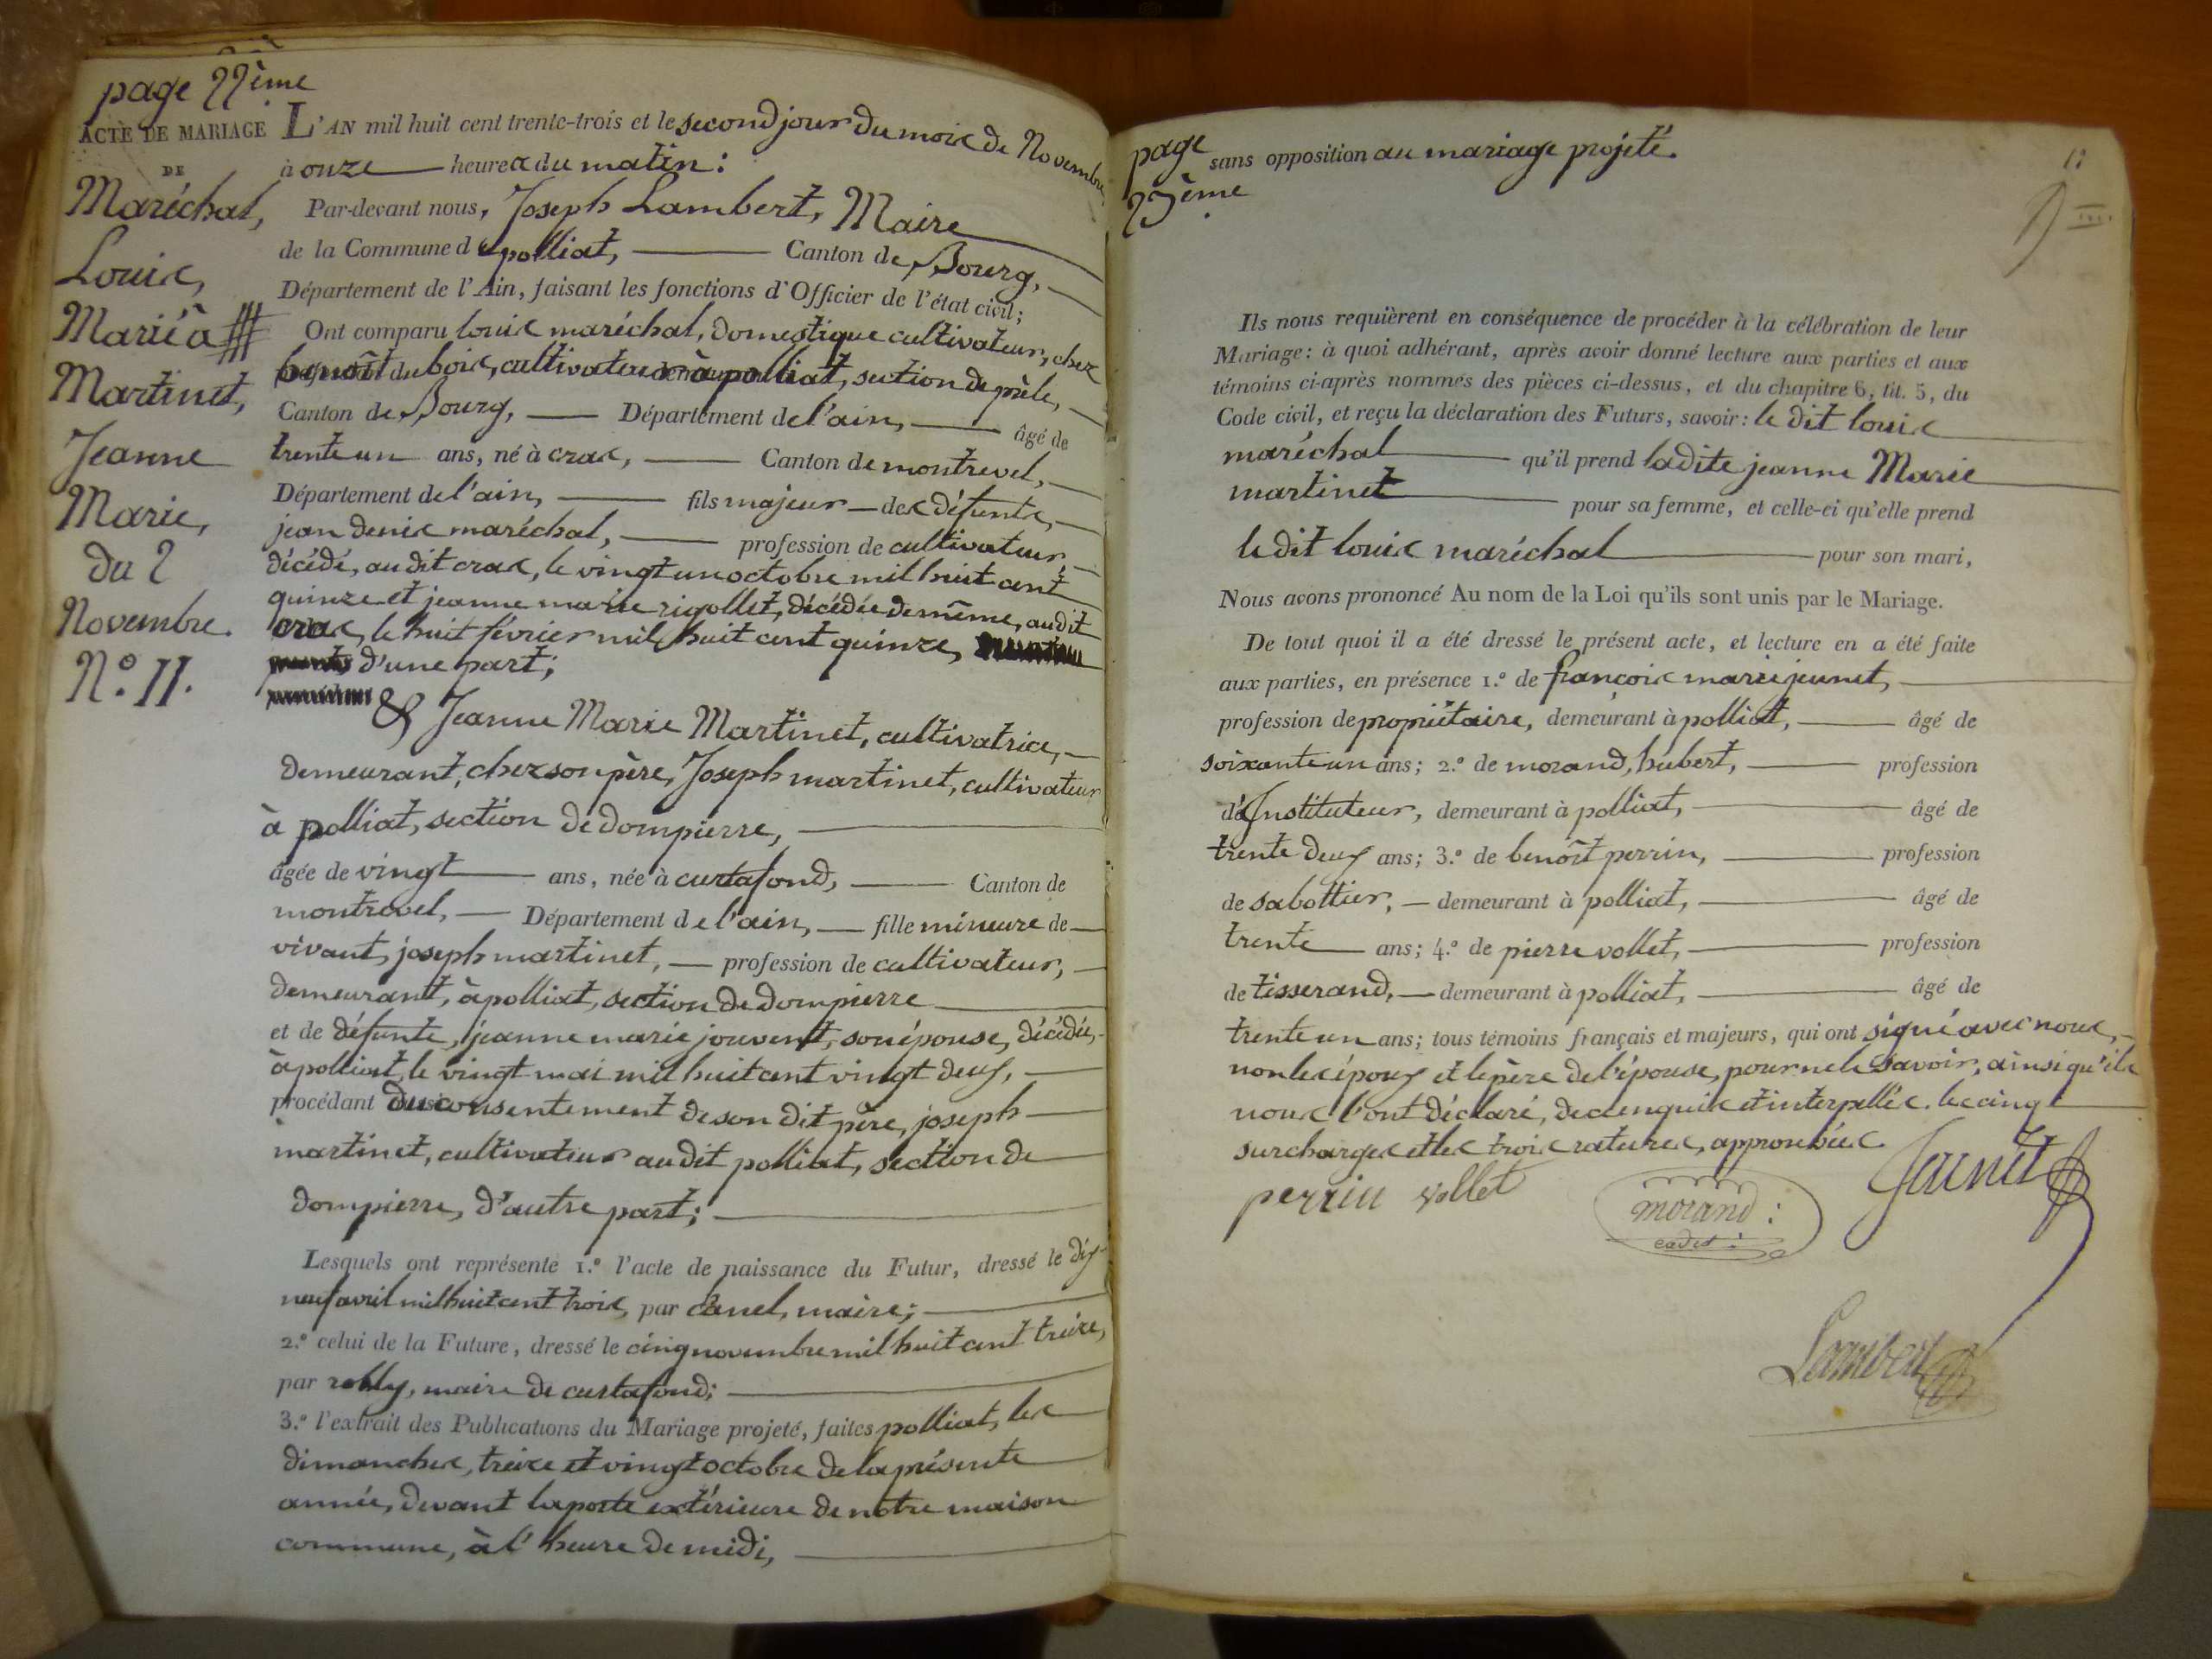 page 22ème
ACTE DE MARIAGE
DE
Maréchal,
Louis,
Marié à
Martinet,
Jeanne
Marie,
du 2
Novembre.
N.º 11.
L'AN mil huit cent trente-trois et le second jour du mois de Novembre
à onze heures du matin :
Par-devant nous, Joseph Lambert, Maire
de la Commune de polliat, Canton de Bourg,
Département de l'Ain, faisant les fonctions d'Officier de l'état civil ;
Ont comparu louis maréchal, domestique cultivateur, chez
benoît dubois, cultivateur à polliat, section de prèle,
Canton de Bourg, Département de l'ain, âgé de
trente un ans, né à cras, Canton de montrevel,
Département de l'ain, fils majeur des défunts,
jean denis maréchal, profession de cultivateur,
décédé, au dit cras, le vingt un octobre mil huit cent
quinze et jeanne marie rigollet, décédée de même, au dit
cras, le huit février mil huit cent quinze,
d'une part ;
& Jeanne Marie Martinet, cultivatrice,
demeurant, chez son père, Joseph martinet, cultivateur
à polliat, section de dompierre,
âgée de vingt ans, née à curtafond, Canton de
montrevel, Département de l'ain, fille mineure de
vivant, joseph martinet, profession de cultivateur,
demeurant, à polliat, section de dompierre
et de défunte, jeanne marie jouvent, son épouse, décédée,
à polliat, le vingt mai mil huit cent vingt deux,
procédant du consentement de son dit père, joseph
martinet, cultivateur au dit polliat, section de
dompierre, d'autre part ;
Lesquels ont représenté 1.º l'acte de naissance du Futur, dressé le dix
neuf avril mil huit cent trois, par canel, maire ;
2.º celui de la Future, dressé le cinq novembre mil huit cent treize,
par robly, maire de curtafond ;
3.º l'extrait des Publications du Mariage projeté, faites polliat, les
dimanches, treize et vingt octobre de la présente
année, devant la porte extérieure de notre maison
commune, à l'heure de midi,
page
23ème
sans opposition au mariage projeté.
Ils nous requièrent en conséquence de procéder à la célébration de leur
Mariage : à quoi adhérant, après avoir donné lecture aux parties et aux
témoins ci-après nommés des pièces ci-dessus, et du chapitre 6, tit. 5, du
Code civil, et reçu la déclaration des Futurs, savoir : le dit louis
maréchal qu'il prend ladite jeanne Marie
martinet pour sa femme, et celle-ci qu'elle prend
le dit louis maréchal pour son mari,
Nous avons prononcé Au nom de la Loi qu'ils sont unis par le Mariage.
De tout quoi il a été dressé le présent acte, et lecture en a été faite
aux parties, en présence 1.º de françois marie jeunet,
profession de propriétaire, demeurant à polliat, âgé de
soixante un ans ; 2.º de morand, hubert, profession
d'Instituteur, demeurant à polliat, âgé de
trente deux ans ; 3.º de benoît perrin, profession
de sabottier, demeurant à polliat, âgé de
trente ans ; 4.º de pierre vollet, profession
de tisserand, demeurant à polliat, âgé de
trente un ans ; tous témoins français et majeurs, qui ont signé avec nous,
non les époux et le père de l'épouse, pour ne le savoir, ainsi qu'ils
nous l'ont déclaré, de ce enquis et interpellés. les cinq
surcharges et les trois ratures, approuvées.
perrin vollet morand : cadet : Jeunet
Lambert